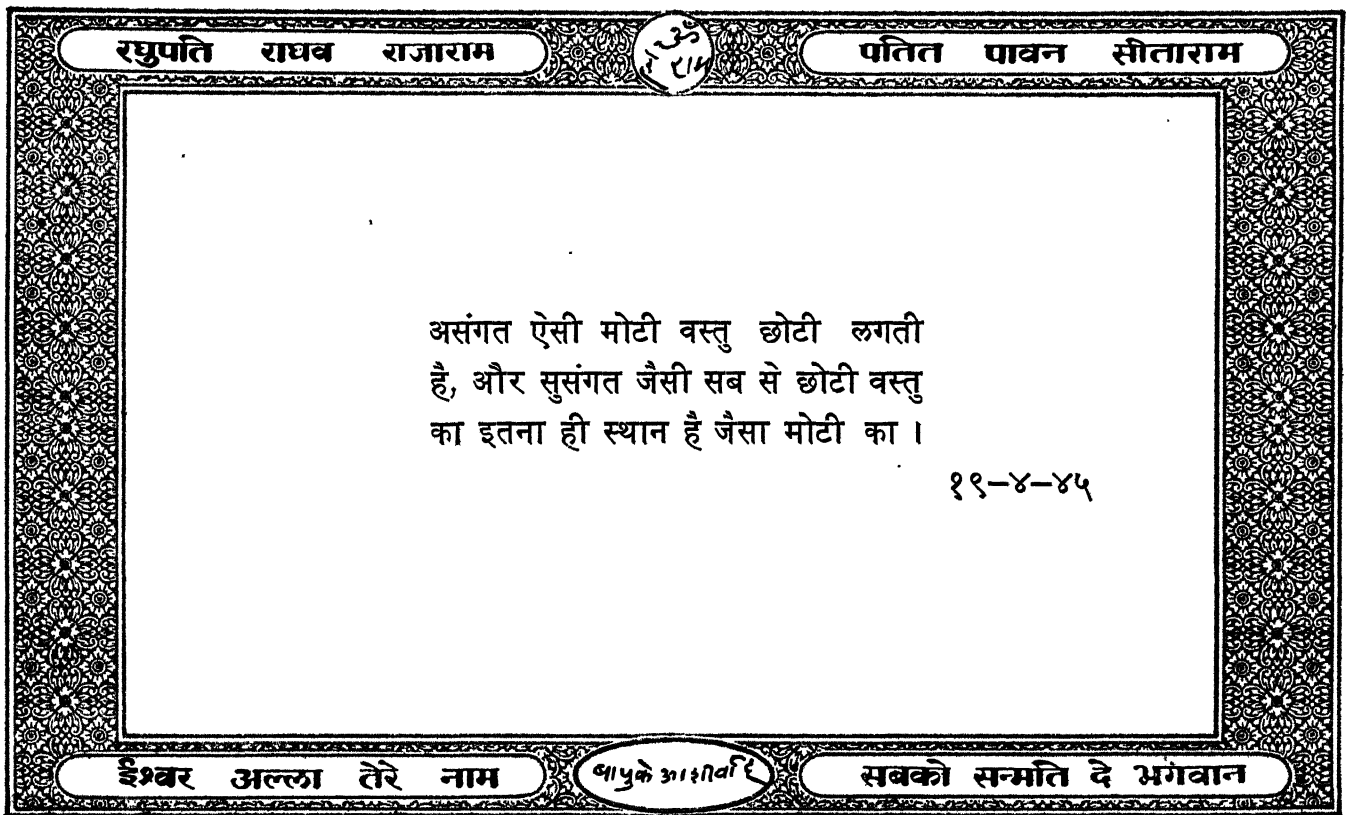 रघुपति राघव राजाराम
ॐ
राम
पतित पावन सीताराम
असंगत ऐसी मोटी वस्तु छोटी लगती
है, और सुसंगत जैसी सब से छोटी वस्तु
का इतना ही स्थान है जैसा मोटी का ।
१९–४–४५
ईश्वर अल्ला तेरे नाम
बापुके आशीर्वाद
सबको सन्मति दे भगवान